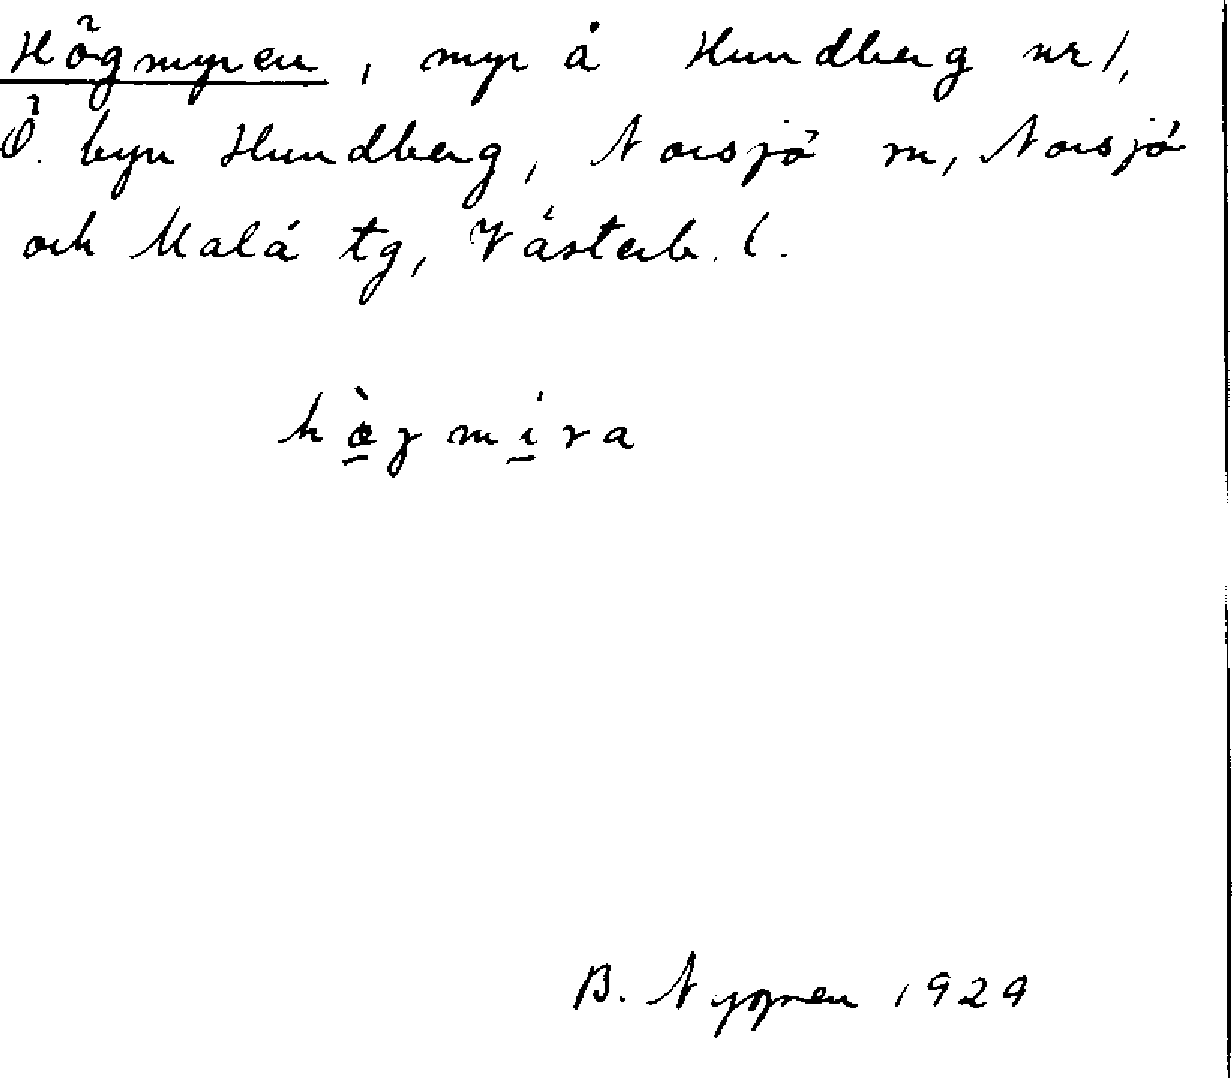 Högmyren, myr å Hundberg nr 1,
Ö. byn Hundberg, Norsjö sn, Norsjö
och Malå tg, Västerb. l.
hø̀gmíra
B. 1929